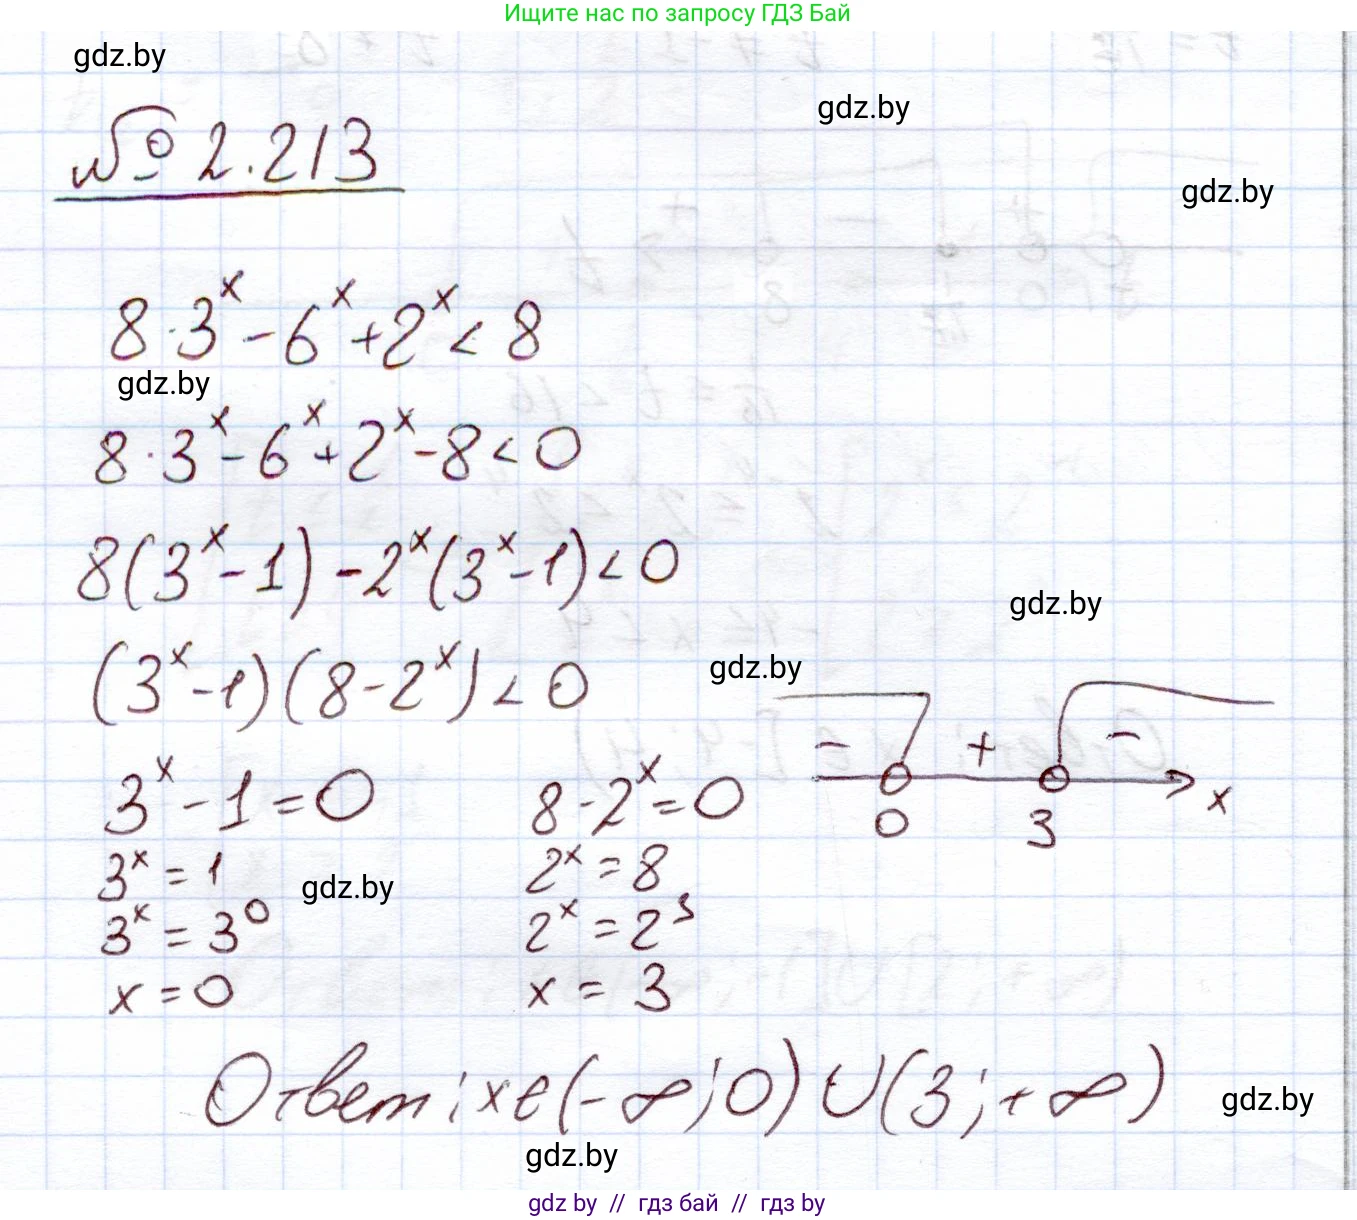 Ищите нас по запросу ГДЗ Бай
gdz.by
gdz.by
№ 2.213
gdz.by
8·3ˣ - 6ˣ + 2ˣ < 8
gdz.by
8·3ˣ - 6ˣ + 2ˣ - 8 < 0
8(3ˣ - 1) - 2ˣ(3ˣ - 1) < 0
gdz.by
(3ˣ - 1)(8 - 2ˣ) < 0
gdz.by
- + -
0 3 x
3ˣ - 1 = 0 8 - 2ˣ = 0
3ˣ = 1 2ˣ = 8
gdz.by
3ˣ = 3⁰ 2ˣ = 2³
x = 0 x = 3
Ответ: x∈(-∞; 0) ∪ (3; +∞)
gdz.by
gdz.by
gdz by // гдз бай // гдз by